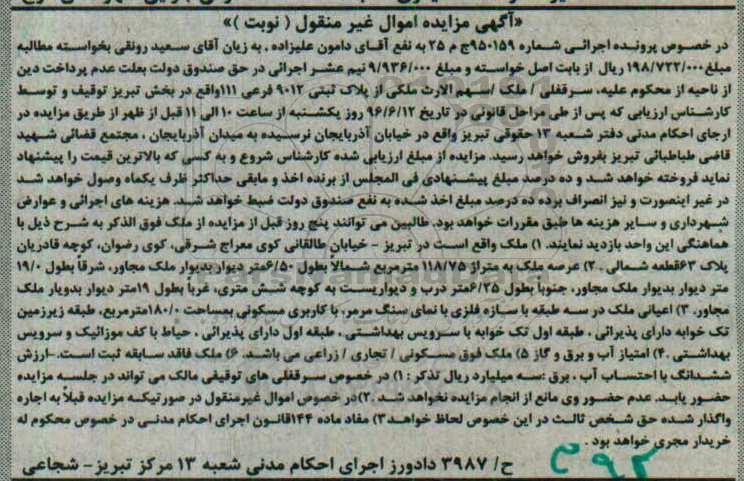 «آگهی مزایده اموال غیر منقول ( نوبت )»
در خصوص پرونده اجرائی شماره ۹۵۰۱۵۹ج م ۲۵ به نفع آقای دامون علیزاده ، به زیان آقای سعید رونقی بخواسته مطالبه
مبلغ ۱۹۸/۷۲۲/۰۰۰ ریال از بابت اصل خواسته و مبلغ ۹/۹۳۶/۰۰۰ نیم عشر اجرائی در حق صندوق دولت بعلت عدم پرداخت دین
از ناحیه از محکوم علیه، سرقفلی / ملک /سهم الارث ملکی از پلاک ثبتی ۹۰۱۲ فرعی ۱۱۱واقع در بخش تبریز توقیف و توسط
کارشناس ارزیابی که پس از طی مراحل قانونی در تاریخ ۹۶/۶/۱۲ روز یکشنبه از ساعت ۱۰ الی ۱۱ قبل از ظهر از طریق مزایده در
اجرای احکام مدنی دفتر شعبه ۱۳ حقوقی تبریز واقع در خیابان آذربایجان نرسیده به میدان آذربایجان ، مجتمع قضائی شهید
قاضی طباطبائی تبریز بفروش خواهد رسید. مزایده از مبلغ ارزیابی شده کارشناس شروع و به کسی که بالاترین قیمت را پیشنهاد
نماید فروخته خواهد شد و ده درصد مبلغ پیشنهادی فی المجلس از برنده اخذ و مابقی حداکثر ظرف یکماه وصول خواهد شد
در غیر اینصورت و نیز انصراف برده ده درصد مبلغ اخذ شده به نفع صندوق دولت ضبط خواهد شد. هزینه های اجرائی و عوارض
شهرداری و سایر هزینه ها طبق مقررات خواهد بود. طالبین می توانند پنج روز قبل از مزایده از ملک فوق الذکر به شرح ذیل با
هماهنگی این واحد بازدید نمایند. ۱) ملک واقع است در تبریز - خیابان طالقانی کوی معراج شرقی، کوی رضوان، کوچه قادریان
پلاک ۶۳قطعه شمالی .۲) عرصه ملک به متراژ ۱۱۸/۷۵ مترمربع شمالاً بطول ۶/۵۰متر دیوار بدیوار ملک مجاور، شرقاً بطول ۱۹/۰
متر دیوار بدیوار ملک مجاور، جنوباً بطول ۶/۲۵متر درب و دیواریست به کوچه شش متری، غرباً بطول ۱۹متر دیوار بدویار ملک
مجاور. ۳) اعیانی ملک در سه طبقه با سازه فلزی با نمای سنگ مرمر، با کاربری مسکونی بمساحت ۱۸۰/۰مترمربع، طبقه زیرزمین
تک خوابه دارای پذیرائی ، طبقه اول تک خوابه با سرویس بهداشتی ، طبقه اول دارای پذیرائی ، حیاط با کف موزائیک و سرویس
بهداشتی .۴) امتیاز آب و برق و گاز ۵) ملک فوق مسکونی / تجاری / زراعی می باشد. ۶) ملک فاقد سابقه ثبت است.-ارزش
ششدانگ با احتساب آب ، برق :سه میلیارد ریال تذکر : ۱) در خصوص سرقفلی های توقیفی مالک می تواند در جلسه مزایده
حضور یابد. عدم حضور وی مانع از انجام مزایده نخواهد شد .۲)در خصوص اموال غیرمنقول در صورتیکه مزایده قبلاً به اجاره
واگذار شده حق شخص ثالث در این خصوص لحاظ خواهد۳) مفاد ماده ۱۴۴قانون اجرای احکام مدنی در خصوص محکوم له
خریدار مجری خواهد بود .
ح/ ۳۹۸۷ دادورز اجرای احکام مدنی شعبه ۱۳ مرکز تبریز- شجاعی